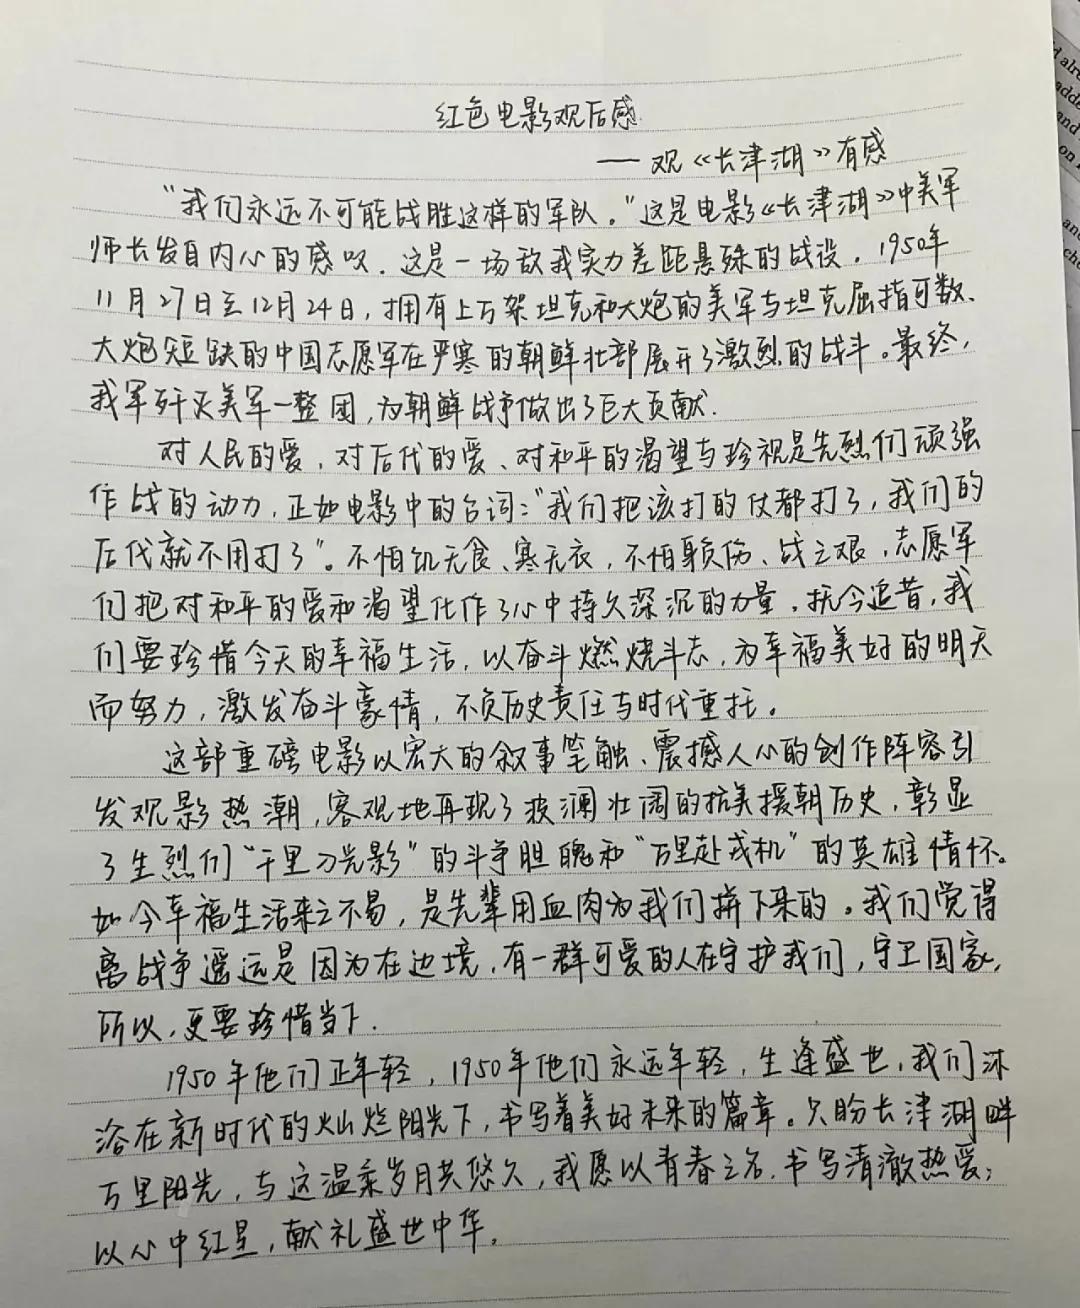 红色电影观后感
—— 观《长津湖》有感
“我们永远不可能战胜这样的军队。”这是电影《长津湖》中美军
师长发自内心的感叹。这是一场敌我实力差距悬殊的战役。1950年
11月27日至12月24日，拥有上万架坦克和大炮的美军与坦克屈指可数、
大炮短缺的中国志愿军在严寒的朝鲜北部展开了激烈的战斗。最终，
我军歼灭美军一整团，为朝鲜战争做出了巨大贡献.
对人民的爱、对后代的爱、对和平的渴望与珍视是先烈们顽强
作战的动力，正如电影中的台词：“我们把该打的仗都打了，我们的
后代就不用打了”。不怕饥无食、寒无衣，不怕身负伤、战之艰，志愿军
们把对和平的爱和渴望化作了心中持久深沉的力量。抚今追昔，我
们要珍惜今天的幸福生活，以奋斗燃烧斗志，为幸福美好的明天
而努力，激发奋斗豪情，不负历史责任与时代重托。
这部重磅电影以宏大的叙事笔触、震撼人心的创作阵容引
发观影热潮，客观地再现了波澜壮阔的抗美援朝历史，彰显
了生烈们“千里刀光影”的斗争胆魄和“万里赴戎机”的英雄情怀。
如今幸福生活来之不易，是先辈用血肉为我们拼下来的。我们觉得
离战争遥远是因为在边境，有一群可爱的人在守护我们，守卫国家，
所以，更要珍惜当下.
1950年他们正年轻，1950年他们永远年轻，生逢盛世，我们沐
浴在新时代的灿烂阳光下，书写着美好未来的篇章。久盼长津湖畔
万里阳光，与这温柔岁月共悠久，我愿以青春之名，书写清澈热爱；
以心中红星，献礼盛世中华。
al
add
and
on
and
ch